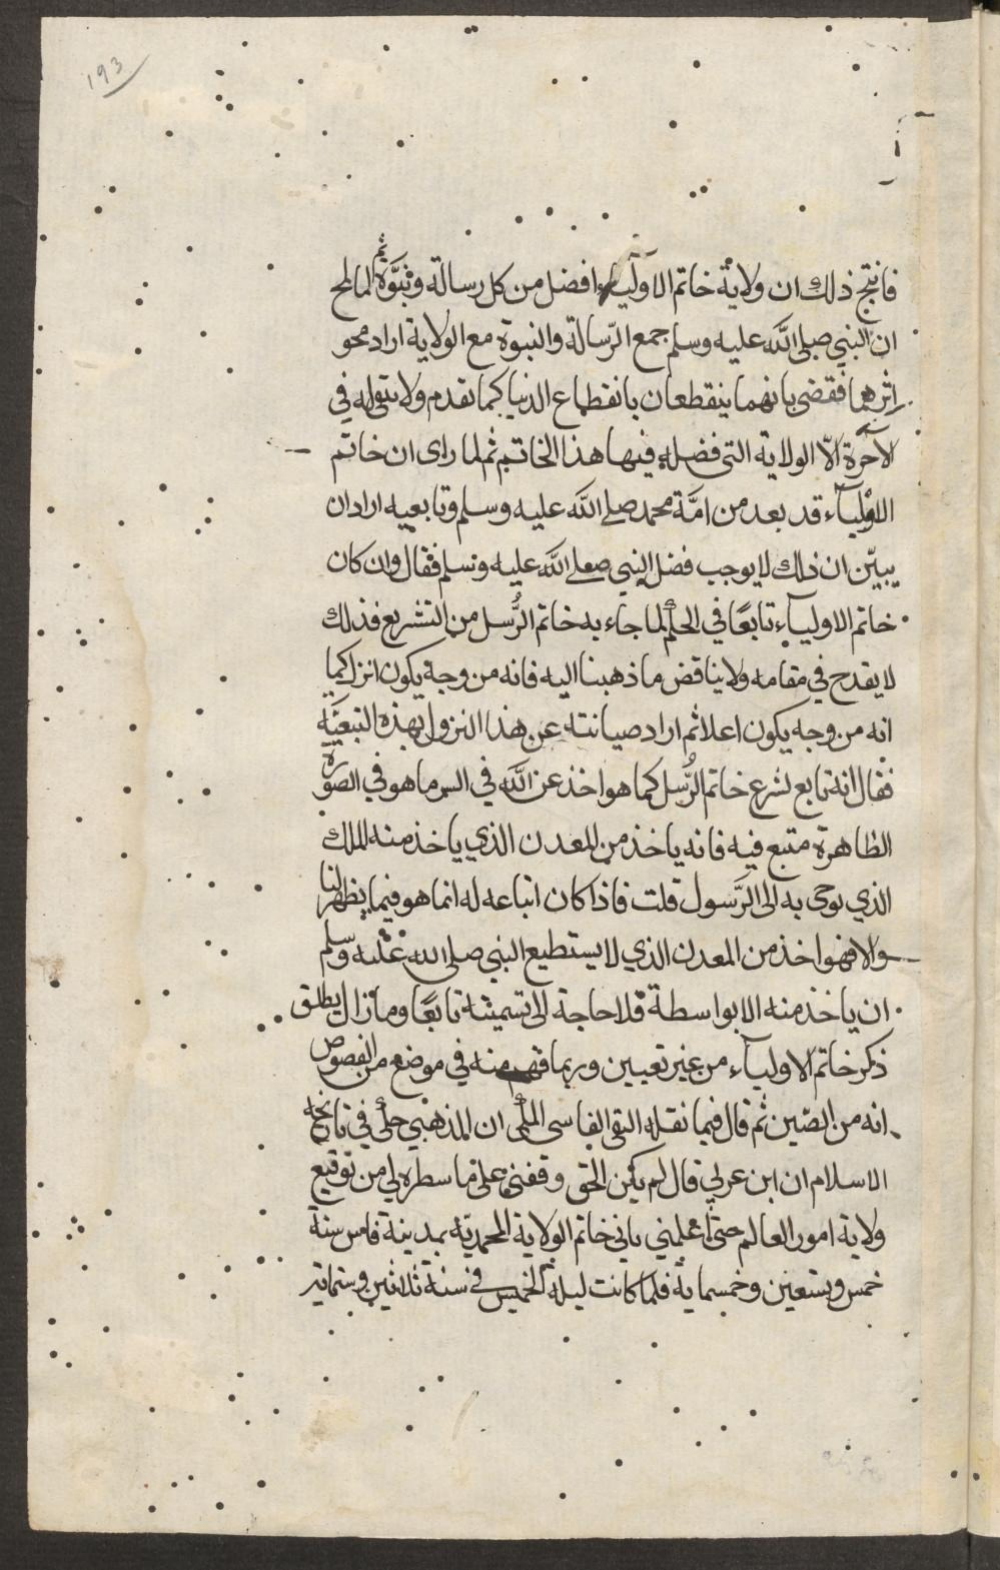 193
فانتج ذلك ان ولاية خاتم الاولياء افضل من كل رسالة ونبوة ثم لما لمح
ان النبي صلى الله عليه وسلم جمع الرسالة والنبوة مع الولاية اراد محو
اثرهما فقضى بانهما ينقطعان بانقطاع الدنيا كما تقدم ولا يبقى له في
الآخرة الّا الولاية التي فضله فيها هذا الخاتم ثم لما راى ان خاتم
الاولياء قد بعد من امّة محمد صلى الله عليه وسلم وتابعيه اراد ان
يبيّن ان ذلك لا يوجب فضل النبي صلى الله عليه وسلم فقال وان كان
خاتم الاولياء تابعًا في الحكم لما جاء به خاتم الرُّسل من التشريع فذلك
لا يقدح في مقامه ولا يناقض ما ذهبنا اليه فانه من وجه يكون انزل كما
انه من وجه يكون اعلا ثم اراد صيانته عن هذا النزول بهذه التبعيّة
فقال انه تابع لشرع خاتم الرُّسل كما هو اخذ عن الله في السر ما هو في الصورة
الظاهرة متبع فيه فانه ياخذ من المعدن الذي ياخذ منه الملك
الذي يوحى به الى الرَّسول قلت فاذا كان اتباعه له انما هو فيما يظهر لنا
والا فهو اخذ من المعدن الذي لا يستطيع النبي صلى الله عليه وسلم
ان ياخذ منه الا بواسطة فلا حاجة الى تسميته تابعًا وما زال يطلق
ذكر خاتم الاولياء من غير تعيين وربما فهم منه في موضع من الفصوص
انه من الصّين ثم قال فيما نقله التقي الفاسي المكي ان الذهبي حكى في تاريخ
الاسلام ان ابن عربي قال لم يكن الحق وقفني على ما سطره لي من توقيع
ولاية امور العالم حتى اعلمني باني خاتم الولاية المحمدية بمدينة فاس سنة
خمس وتسعين وخمسماية فلما كانت ليلة الخميس في سنة ثلاثين وستماية